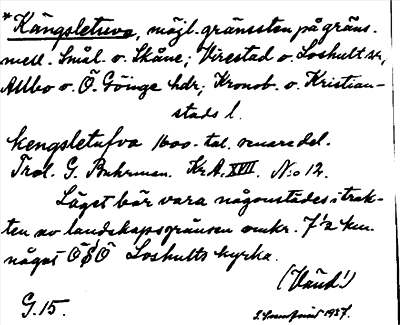 *Kängsletuva, möjl. gränssten på gräns.
mell. Smål. o. Skåne; Virestad o. Loshult snr,
Allbo o. Ö. Göinge hdr; Kronob. o. Kristian-
stads l.
kengsletufva 1600-tal. senare del.
Trol. G. Buhrman. Kr.A. XVII. N:o 12.
Läget bör vara någonstädes i trak-
ten av landskapsgränsen omkr. 7 1/2 km.
något Ö Loshults kyrka.
G. 15.
1937.